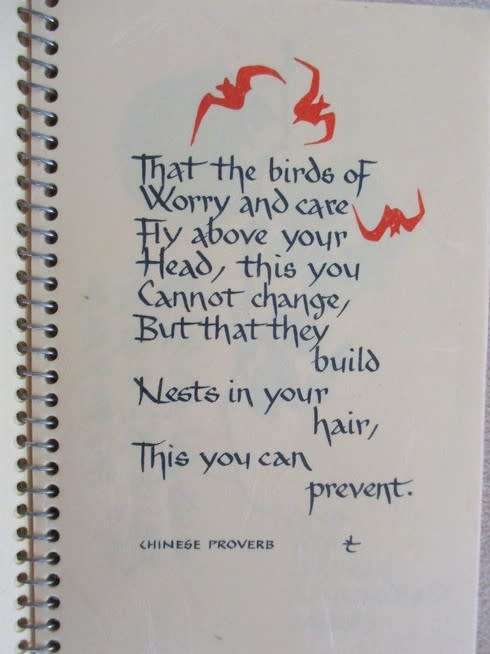 That the birds of
Worry and care
Fly above your
Head, this you
Cannot change,
But that they
build
Nests in your
hair,
This you can
prevent.
CHINESE PROVERB